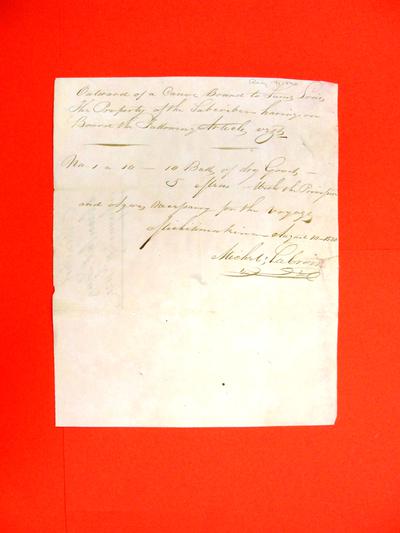 Outward of a Canoe Bound to
The Property of the Subscriber having on
Board the Following Articles vizt
No. 1 a 10 — 10 Bales of dry Goods —
5 Men — With the Provision
and Agrees Necessary for the Voyage
Michilimakinac August 10
Michel Labroix